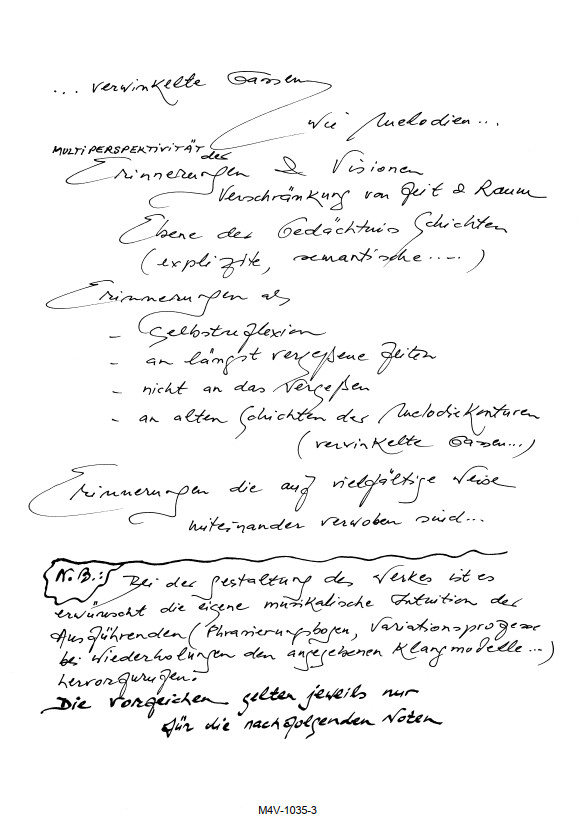 ... verwinkelte Gassen
wie Melodien...
MULTIPERSPEKTIVITÄT der
Erinnerungen & Visionen
Verschränkung von Zeit & Raum
Ebene der Gedächtnis Schichten
(explizite, semantische.....)
Erinnerungen als
- Selbstreflexion
- an längst vergeßene Zeiten
- nicht an das Vergeßen
- an alten Schichten der Melodiekonturen
(verwinkelte Gassen...)
Erinnerungen die auf vielfältige Weise
miteinander verwoben sind...
N.B.: Bei der gestaltung des Werkes ist es
erwünscht die eigene musikalische Intuition der
Ausführenden (Phrasierungsbogen, Variationsprozesse
bei Wiederholungen den angegebenen Klangmodelle...)
hervorzurufen.
Die Vorzeichen gelten jeweils nur
für die nachfolgenden Noten
M4V-1035-3